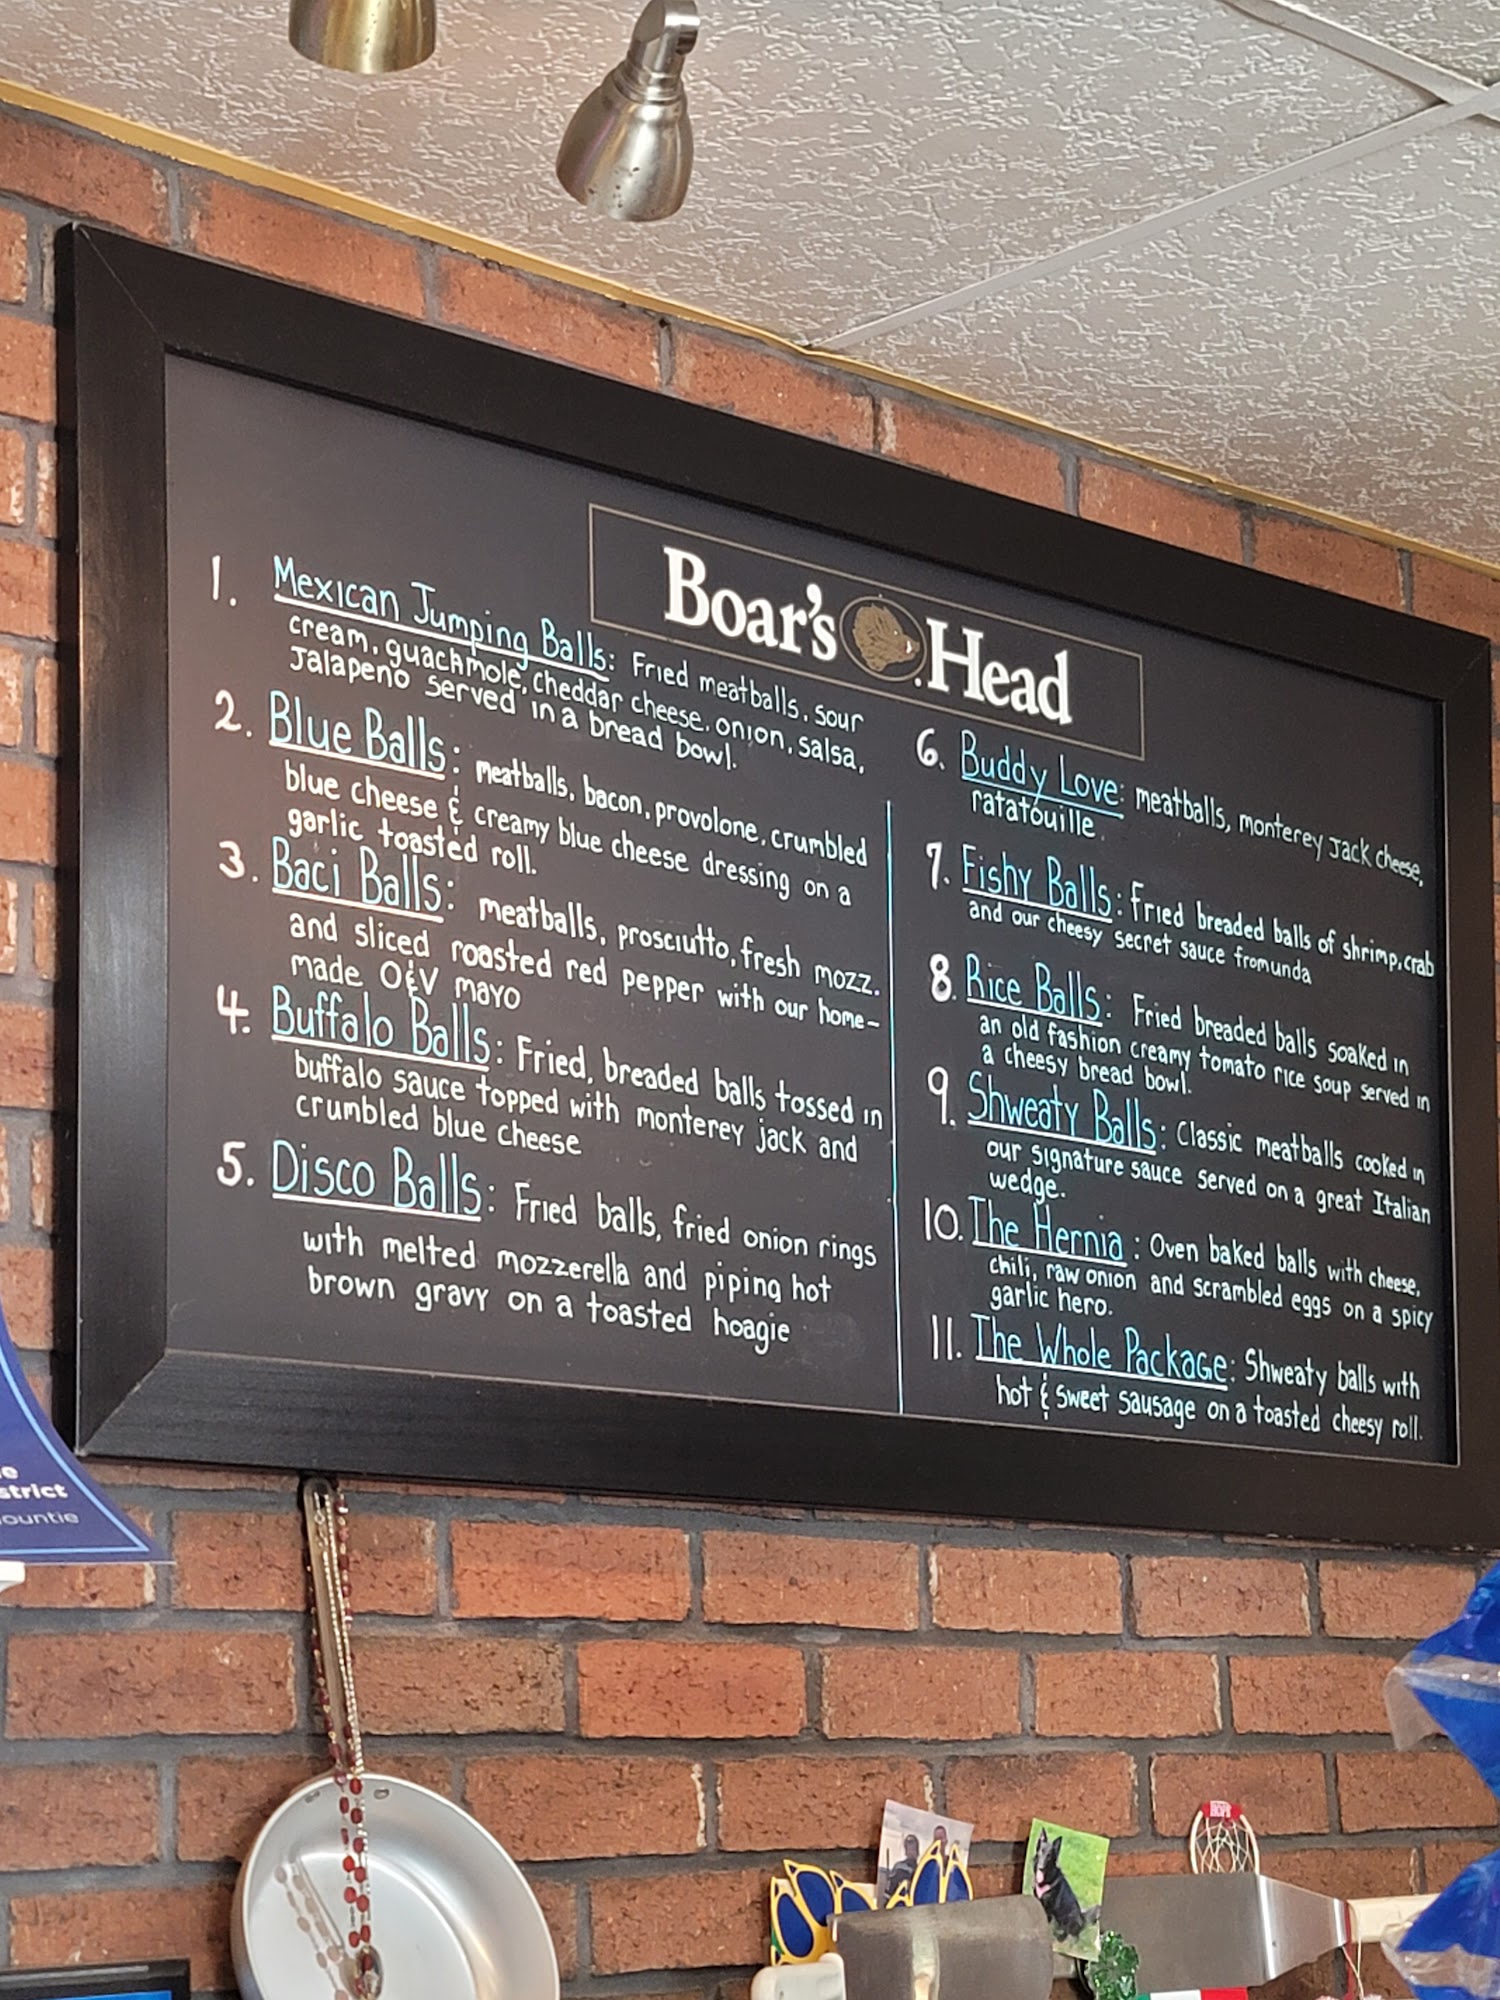 Boar's Head
1. Mexican Jumping Balls: Fried meatballs, sour
cream, guacamole, cheddar cheese, onion, salsa,
Jalapeno served in a bread bowl.
2. Blue Balls: meatballs, bacon, provolone, crumbled
blue cheese & creamy blue cheese dressing on a
garlic toasted roll.
3. Baci Balls: meatballs, prosciutto, fresh mozz.
and sliced roasted red pepper with our home-
made O&V mayo
4. Buffalo Balls: Fried, breaded balls tossed in
buffalo sauce topped with monterey jack and
crumbled blue cheese
5. Disco Balls: Fried balls, fried onion rings
with melted mozzerella and piping hot
brown gravy on a toasted hoagie
6. Buddy Love: meatballs, monterey Jack cheese,
ratatouille
7. Fishy Balls: Fried breaded balls of shrimp, crab
and our cheesy secret sauce fromunda
8. Rice Balls: Fried breaded balls soaked in
an old fashion creamy tomato rice soup served in
a cheesy bread bowl.
9. Shweaty Balls: Classic meatballs cooked in
our signature sauce served on a great Italian
wedge.
10. The Hernia: Oven baked balls with cheese,
chili, raw onion and scrambled eggs on a spicy
garlic hero.
11. The Whole Package: Shweaty balls with
hot & sweet sausage on a toasted cheesy roll.